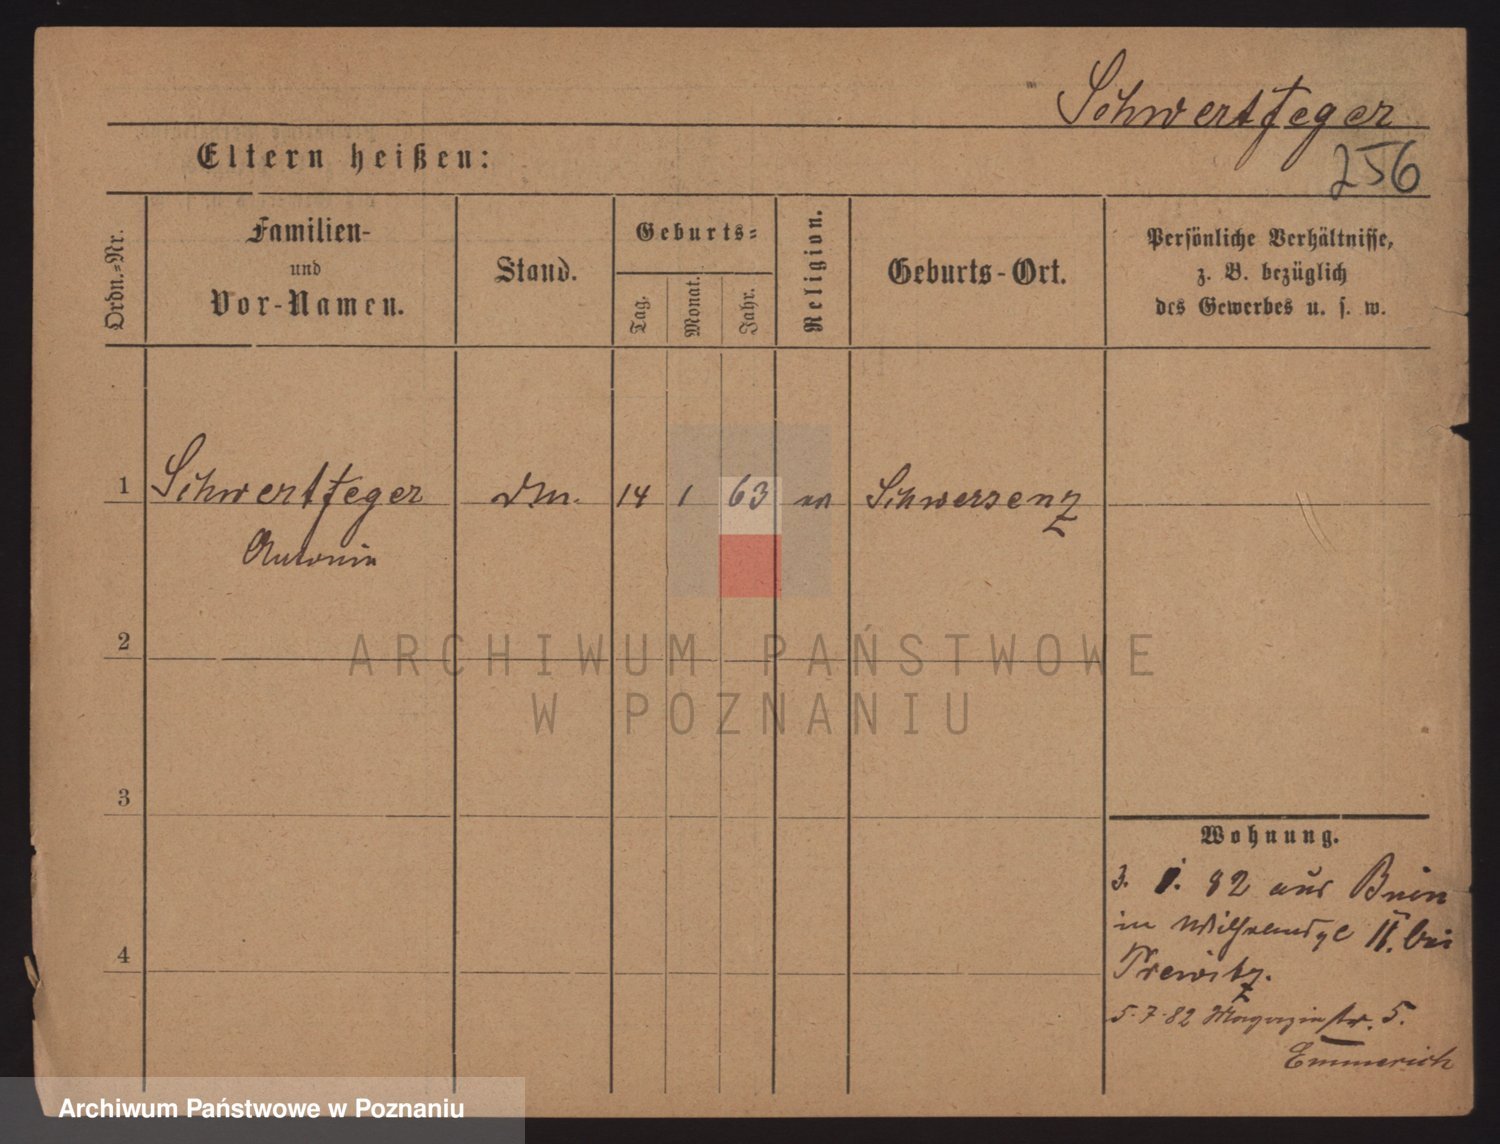 Schwertfeger
256
Eltern heißen:
Ordn.=Nr.
Familien-
und
Vor-Namen.
Stand.
Geburts=
Tag.
Monat.
Jahr.
Religion.
Geburts-Ort.
Persönliche Verhältnisse,
z. B. bezüglich
des Gewerbes u. s. w.
1 Schwertfeger 14 1 63 Schwersenz
Antonin
2
3
4
Wohnung.
3. 1. 82 aus Bnin
in II. bei
Trewitz.
5.7.82 Magazinstr. 5.
Emmerich
ARCHIWUM PAŃSTWOWE
W POZNANIU
Archiwum Państwowe w Poznaniu